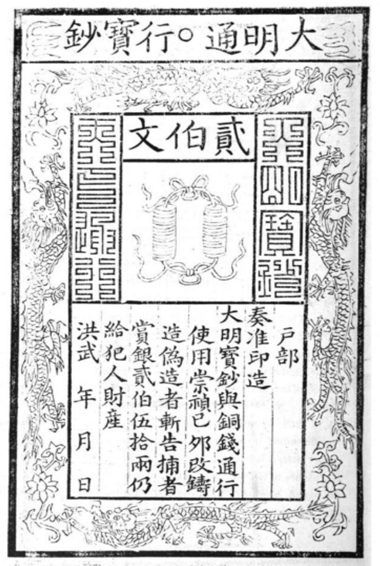 大明通○行寶鈔
貳伯文
戶部
奏准印造
大明寶鈔與銅錢通行
使用崇禎已夘改鑄
造偽造者斬告捕者
賞銀貳伯伍拾兩仍
給犯人財產
洪武 年 月 日